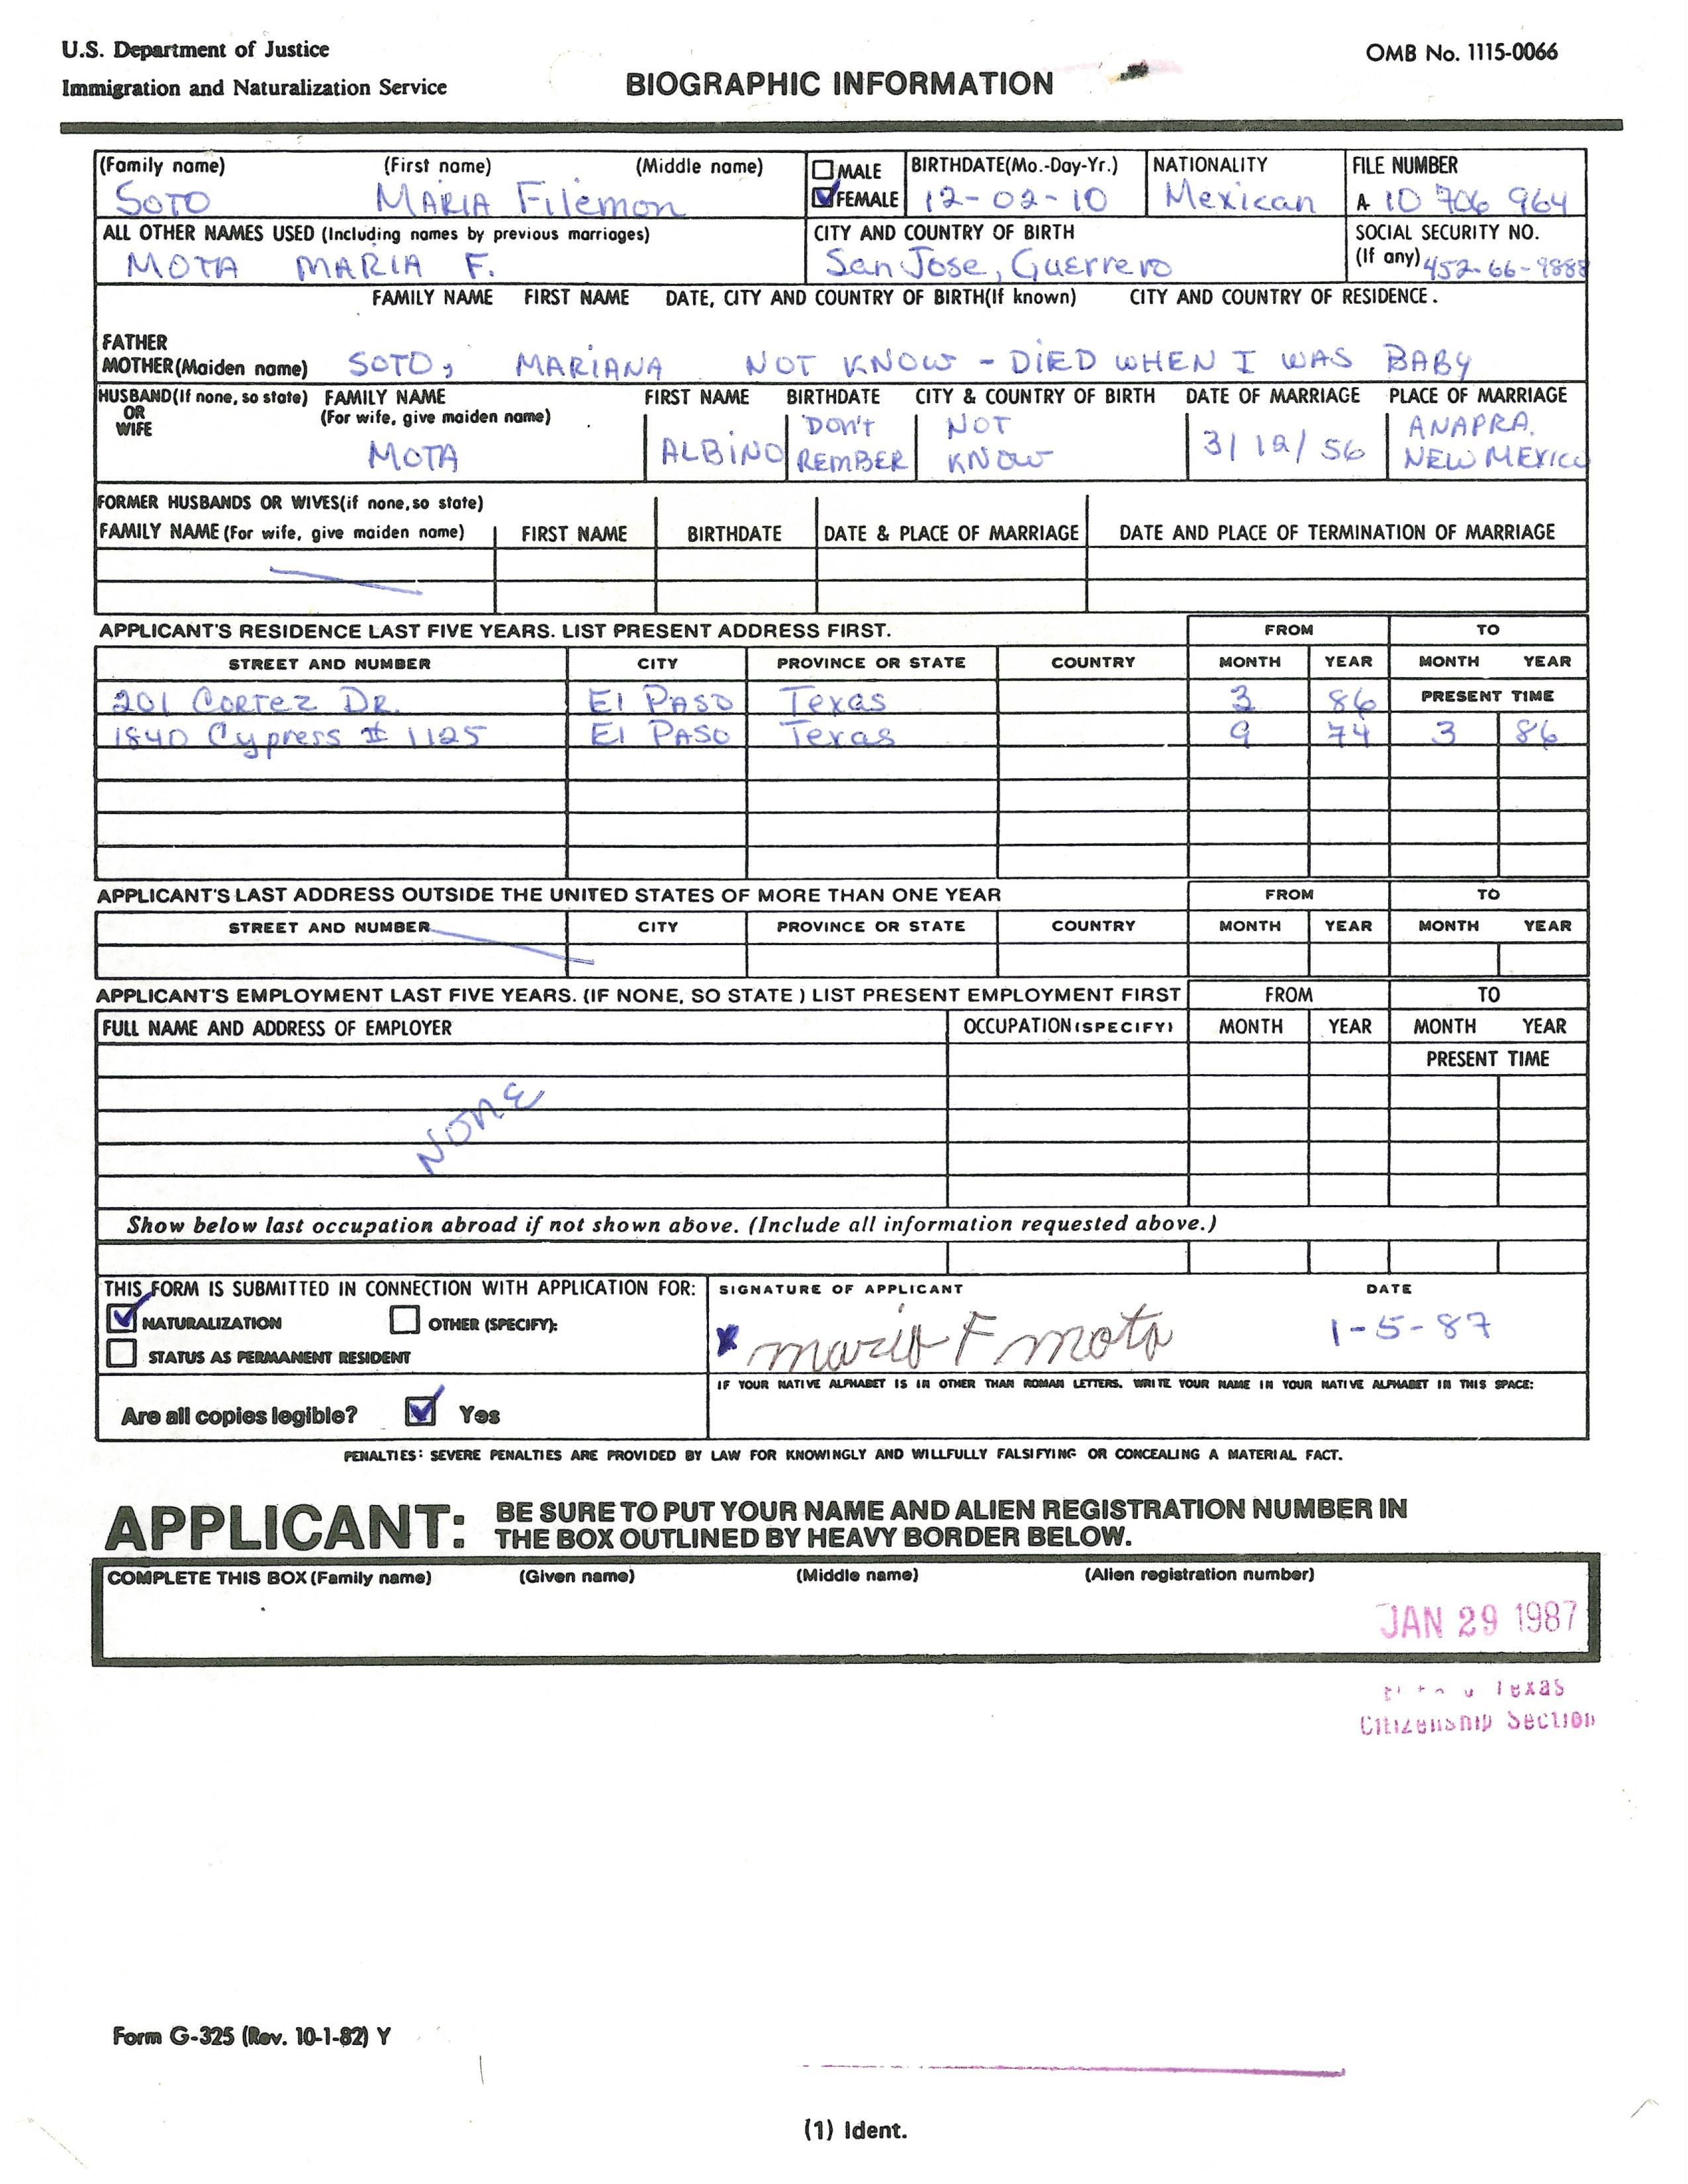 U.S. Department of Justice
OMB No. 1115-0066
Immigration and Naturalization Service
BIOGRAPHIC INFORMATION
(Family name) (First name) (Middle name) MALE BIRTHDATE(Mo.-Day-Yr.) NATIONALITY FILE NUMBER
SOTO MARIA Filemon FEMALE 12-02-10 Mexican A 10 706 964
ALL OTHER NAMES USED (Including names by previous marriages) CITY AND COUNTRY OF BIRTH SOCIAL SECURITY NO.
MOTA MARIA F. San Jose, Guerrero (If any) 452-66-9888
FAMILY NAME FIRST NAME DATE, CITY AND COUNTRY OF BIRTH(If known) CITY AND COUNTRY OF RESIDENCE.
FATHER
MOTHER(Maiden name) SOTO, MARIANA NOT KNOW - DIED WHEN I WAS BABY
HUSBAND(If none, so state) FAMILY NAME FIRST NAME BIRTHDATE CITY & COUNTRY OF BIRTH DATE OF MARRIAGE PLACE OF MARRIAGE
OR (For wife, give maiden name) DON'T NOT ANAPRA,
WIFE MOTA ALBINO REMBER KNOW 3/12/56 NEW MEXICO
FORMER HUSBANDS OR WIVES(if none, so state)
FAMILY NAME (For wife, give maiden name) FIRST NAME BIRTHDATE DATE & PLACE OF MARRIAGE DATE AND PLACE OF TERMINATION OF MARRIAGE
APPLICANT'S RESIDENCE LAST FIVE YEARS. LIST PRESENT ADDRESS FIRST. FROM TO
STREET AND NUMBER CITY PROVINCE OR STATE COUNTRY MONTH YEAR MONTH YEAR
201 Cortez DR. El PASO Texas 3 86 PRESENT TIME
1840 Cypress # 1125 El PASO Texas 9 74 3 86
APPLICANT'S LAST ADDRESS OUTSIDE THE UNITED STATES OF MORE THAN ONE YEAR FROM TO
STREET AND NUMBER CITY PROVINCE OR STATE COUNTRY MONTH YEAR MONTH YEAR
APPLICANT'S EMPLOYMENT LAST FIVE YEARS. (IF NONE, SO STATE) LIST PRESENT EMPLOYMENT FIRST FROM TO
FULL NAME AND ADDRESS OF EMPLOYER OCCUPATION (SPECIFY) MONTH YEAR MONTH YEAR
PRESENT TIME
NONE
Show below last occupation abroad if not shown above. (Include all information requested above.)
THIS FORM IS SUBMITTED IN CONNECTION WITH APPLICATION FOR: SIGNATURE OF APPLICANT DATE
NATURALIZATION OTHER (SPECIFY): maria F mota 1-5-87
STATUS AS PERMANENT RESIDENT
IF YOUR NATIVE ALPHABET IS IN OTHER THAN ROMAN LETTERS, WRITE YOUR NAME IN YOUR NATIVE ALPHABET IN THIS SPACE:
Are all copies legible? Yes
PENALTIES: SEVERE PENALTIES ARE PROVIDED BY LAW FOR KNOWINGLY AND WILLFULLY FALSIFYING OR CONCEALING A MATERIAL FACT.
APPLICANT: BE SURE TO PUT YOUR NAME AND ALIEN REGISTRATION NUMBER IN
THE BOX OUTLINED BY HEAVY BORDER BELOW.
COMPLETE THIS BOX (Family name) (Given name) (Middle name) (Alien registration number)
JAN 29 1987
Texas
Citizenship Section
Form G-325 (Rev. 10-1-82) Y
(1) Ident.